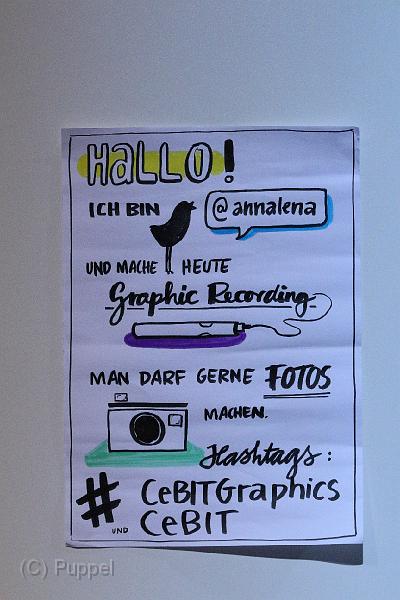 HaLLO!
ICH BIN @annalena
UND MACHE HEUTE
Graphic Recording
MAN DARF GERNE FOTOS
MACHEN.
Hashtags:
# CeBITGraphics
UND CeBIT
(C) Puppel